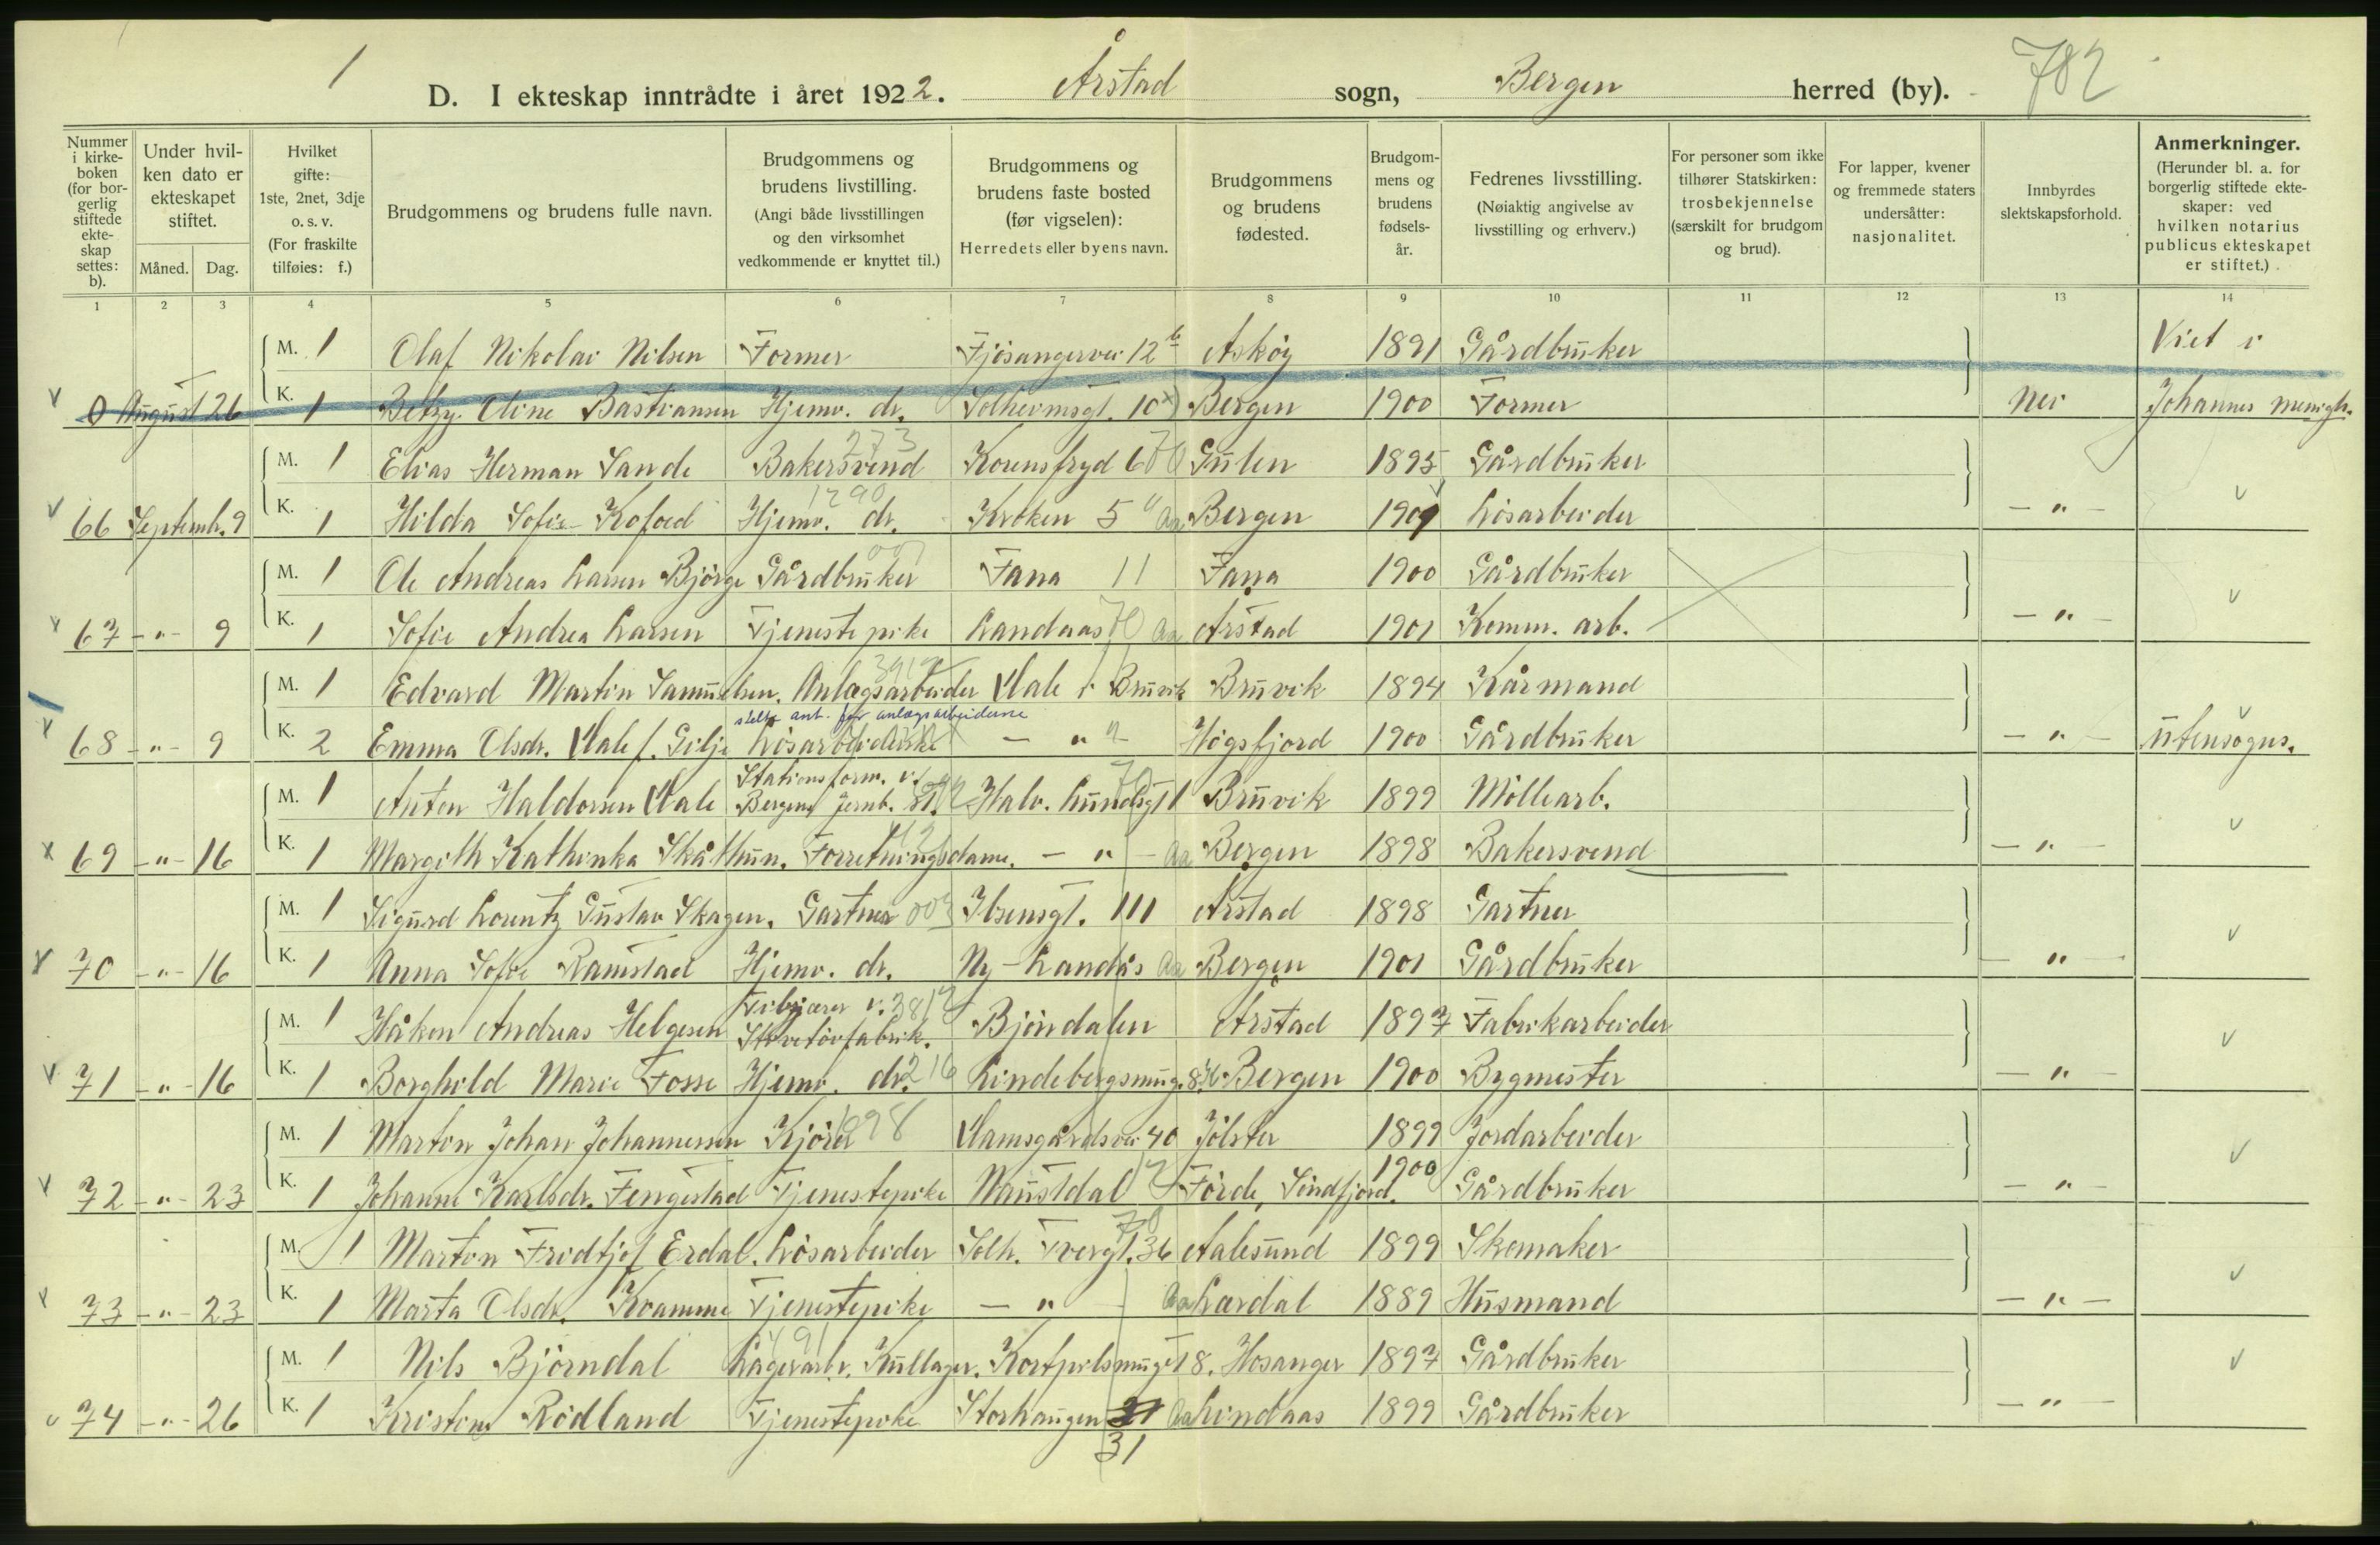 1 D. I ekteskap inntrådte i året 1922. Årstad sogn, Bergen herred (by). 782
Nummer i kirkeboken (for borgerlig stiftede ekteskap settes: b).
Under hvilken dato er ekteskapet stiftet.
Måned. Dag.
Hvilket gifte: 1ste, 2net, 3dje o. s. v. (For fraskilte tilføies: f.)
Brudgommens og brudens fulle navn.
Brudgommens og brudens livstilling. (Angi både livsstillingen og den virksomhet vedkommende er knyttet til.)
Brudgommens og brudens faste bosted (før vigselen): Herredets eller byens navn.
Brudgommens og brudens fødested.
Brudgommens og brudens fødselsår.
Fedrenes livsstilling. (Nøiaktig angivelse av livsstilling og erhverv.)
For personer som ikke tilhører Statskirken: trosbekjennelse (særskilt for brudgom og brud).
For lapper, kvener og fremmede staters undersåtter: nasjonalitet.
Innbyrdes slektskapsforhold.
Anmerkninger. (Herunder bl. a. for borgerlig stiftede ekteskaper: ved hvilken notarius publicus ekteskapet er stiftet.)
1 2 3 4 5 6 7 8 9 10 11 12 13 14
M. 1 Olaf Nikolai Nilsen Former Fjösangervei 12 b Askög 1891 Gårdbruker Viet i
0 August 26 K. 1 Betzy Oline Bastiansen Hjemv. dr. Solheimsgt. 10 Bergen 1900 Former Nei Johannes menigh.
M. 1 Elias Herman Sande Bakersvend 273 Gulen 1895 Gårdbruker
66 Septemb. 9 K. 1 Hilda Sofie Kofoed Hjemv. dr. 1290 Kroken 5 Aa Bergen Lösarbeider — " —
M. 1 Ole Andreas Larsen Björge Gårdbruker Fana 11 Fana 1900 Gårdbruker
67 — " — 9 K. 1 Sofie Andrea Larsen Tjenestepike Landaas 70 Aa Årstad 1901 Komm. arb. — " —
M. 1 Edvard Martin Samuelsen. Anlægsarbeider Vale i Bruvik Bruvik 1894 Kårmand
68 — " — 9 K. 2 Emma Olsdr. Vale f. Gilje — " — Högsfjord 1900 Gårdbruker — " — utensogns.
M. 1 Anton Haldorsen Vale Stationsform. v. Bergens Jernb. st. Bruvik 1899 Möllearb.
69 — " — 16 K. 1 Margith Kathinka Skålthun. Forretningsdame. — " — Aa Bergen 1898 Bakersvend — " —
M. 1 Sigurd Lorentz Gustav Skagen. Gartner 003 Ibsensgt. 111 Årstad 1898 Gartner
70 — " — 16 K. 1 Anna Sofie Ramstad Hjemv. dr. Ny-Landås Aa Bergen 1901 Gårdbruker — " —
M. 1 Håkon Andreas Helgesen Björndalen Årstad 1897 Fabrikarbeider
71 — " — 16 K. 1 Borghild Marie Fosse Hjemv. dr. 216 Lindebergsmug. Bergen 1900 Bygmester — " —
M. 1 Martin Johan Johannessen Kjörer 998 Damsgårdsvei 40 Jölster 1899 Jordarbeider
72 — " — 23 K. 1 Johanne Karlsdr. Fengestad Tjenestepike Naustdal Förde, Söndfjord. 1900 Gårdbruker — " —
M. 1 Martin Fridtjof Erdal. Lösarbeider Solh. Tvergt. 36 Aalesund 1899 Skomaker
73 — " — 23 K. 1 Marta Olsdr. Kvamme Tjenestepike — " — Aa Lærdal 1889 Husmand — " —
M. 1 Nils Björndal Lagerarb. v. Kullager. 18. Hosanger 1897 Gårdbruker
74 — " — 26 K. 1 Kristine Rödland Tjenestepike Storhaugen 21 Aa Lindaas 1899 Gårdbruker — " —
31